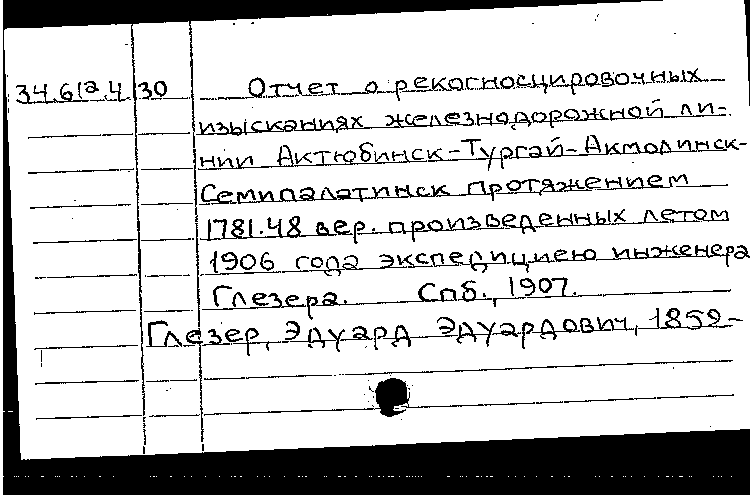 34.612.4 30 Отчет о рекогносцировочных
изысканиях железнодорожной ли-
нии Актюбинск-Тургай-Акмолинск-
Семипалатинск протяжением
1781.48 вер. произведенных летом
1906 года экспедициею инженера
Глезера. Спб., 1907.
Глезер, Эдуард Эдуардович, 1859-